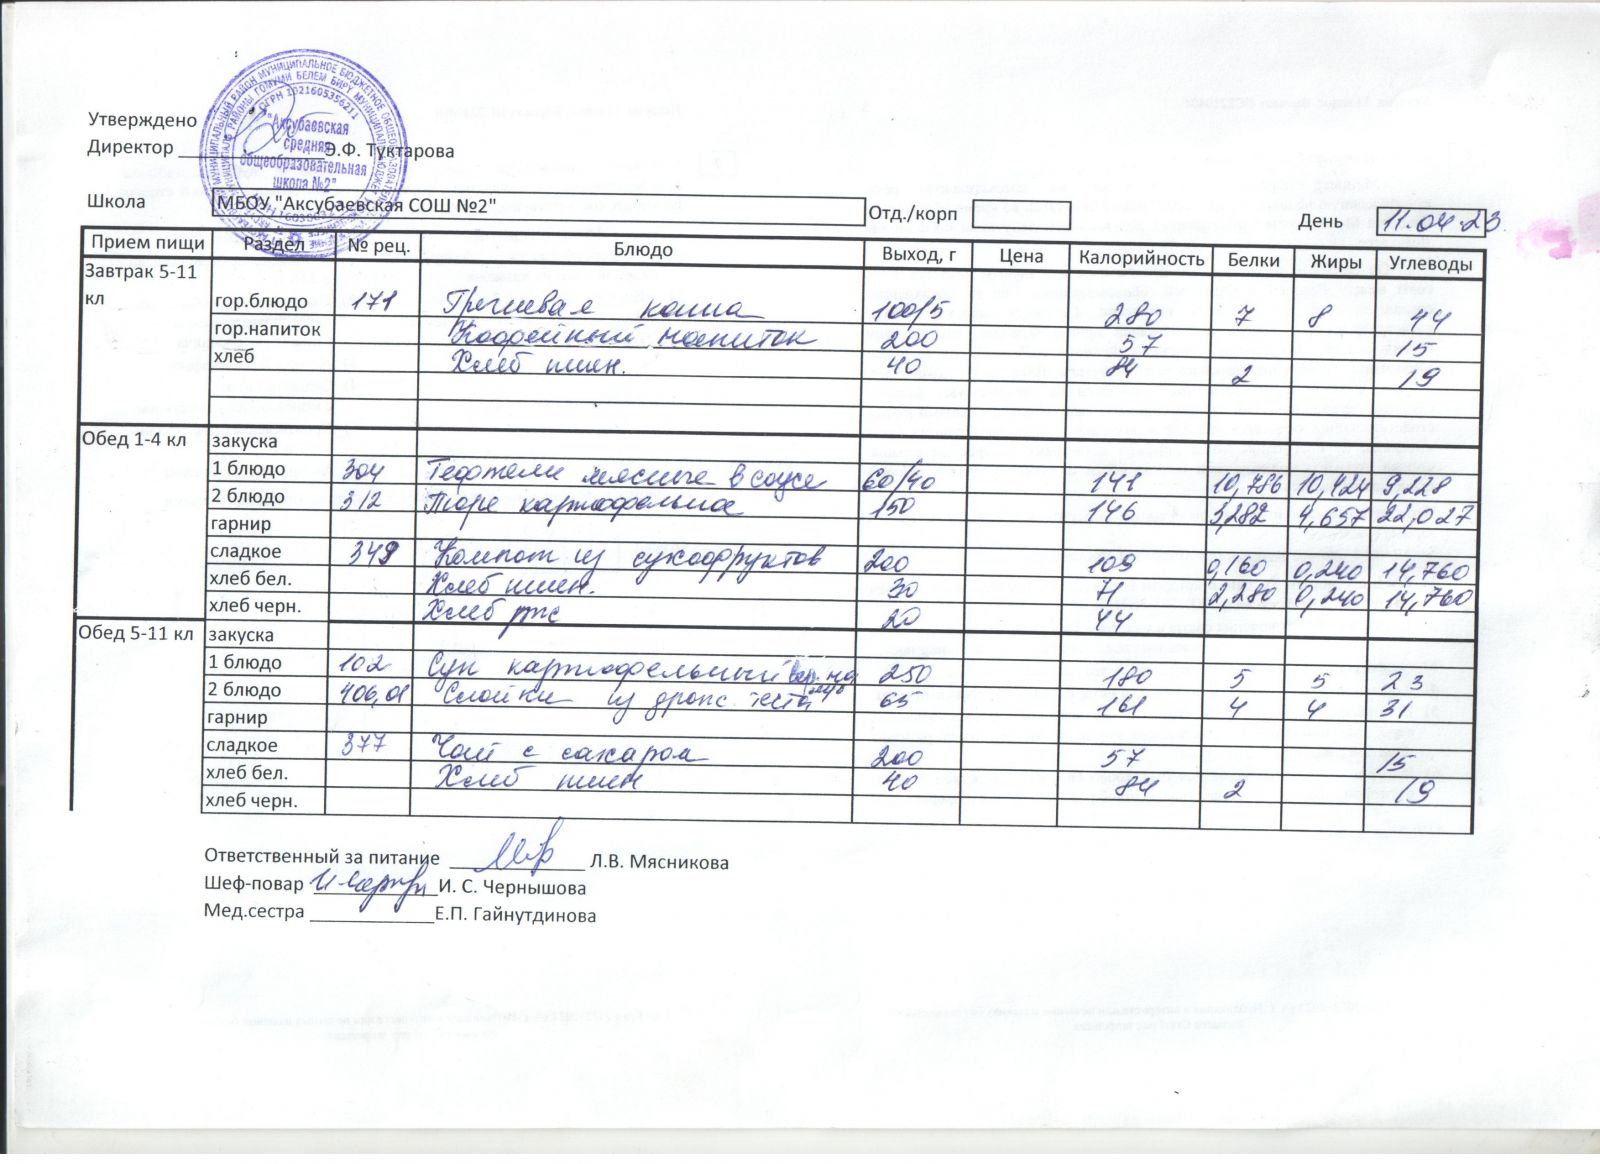 Утверждено
Директор Э.Ф. Туктарова
ОГРН 1021605356211
"Аксубаевская
средняя
общеобразовательная
школа №2"
Школа МБОУ "Аксубаевская СОШ №2" Отд./корп День 11.04.23
Прием пищи Раздел № рец. Блюдо Выход, г Цена Калорийность Белки Жиры Углеводы
Завтрак 5-11
кл
гор.блюдо 171 Гречневая каша 100/5 280 7 8 44
гор.напиток Кофейный напиток 200 57 15
хлеб Хлеб пшен. 40 84 2 19
Обед 1-4 кл закуска
1 блюдо 304 Тефтели мясные в соусе 60/40 141 10,786 10,424 9,228
2 блюдо 312 Пюре картофельное 150 146 3,282 4,657 22,027
гарнир
сладкое 349 Компот из сухофруктов 200 109 0,160 0,240 14,760
хлеб бел. Хлеб пшен. 30 71 2,280 0,240 14,760
хлеб черн. Хлеб рж 20 44
Обед 5-11 кл закуска
1 блюдо 102 Суп картофельный 250 180 5 5 23
2 блюдо 406,01 Слойки из дрож. теста 65 161 4 4 31
гарнир
сладкое 377 Чай с сахаром 200 57 15
хлеб бел. Хлеб пшен 40 84 2 19
хлеб черн.
Ответственный за питание Л.В. Мясникова
Шеф-повар И. С. Чернышова
Мед.сестра Е.П. Гайнутдинова